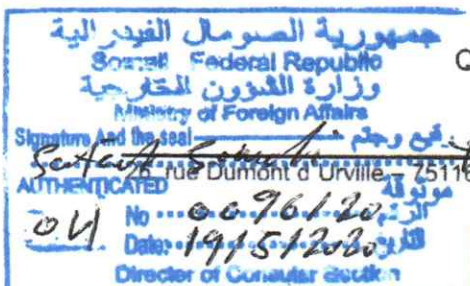 جمهورية الصومال الفيدرالية
Somali Federal Republic
وزارة الشؤون الخارجية
Ministry of Foreign Affairs
Signature And the seal
26, rue Dumont d'Urville – 7511
AUTHENTICATED موثوقة
No 0096/20 الرقم
Date: 19/5/2020 التاريخ
Director of Consular Section